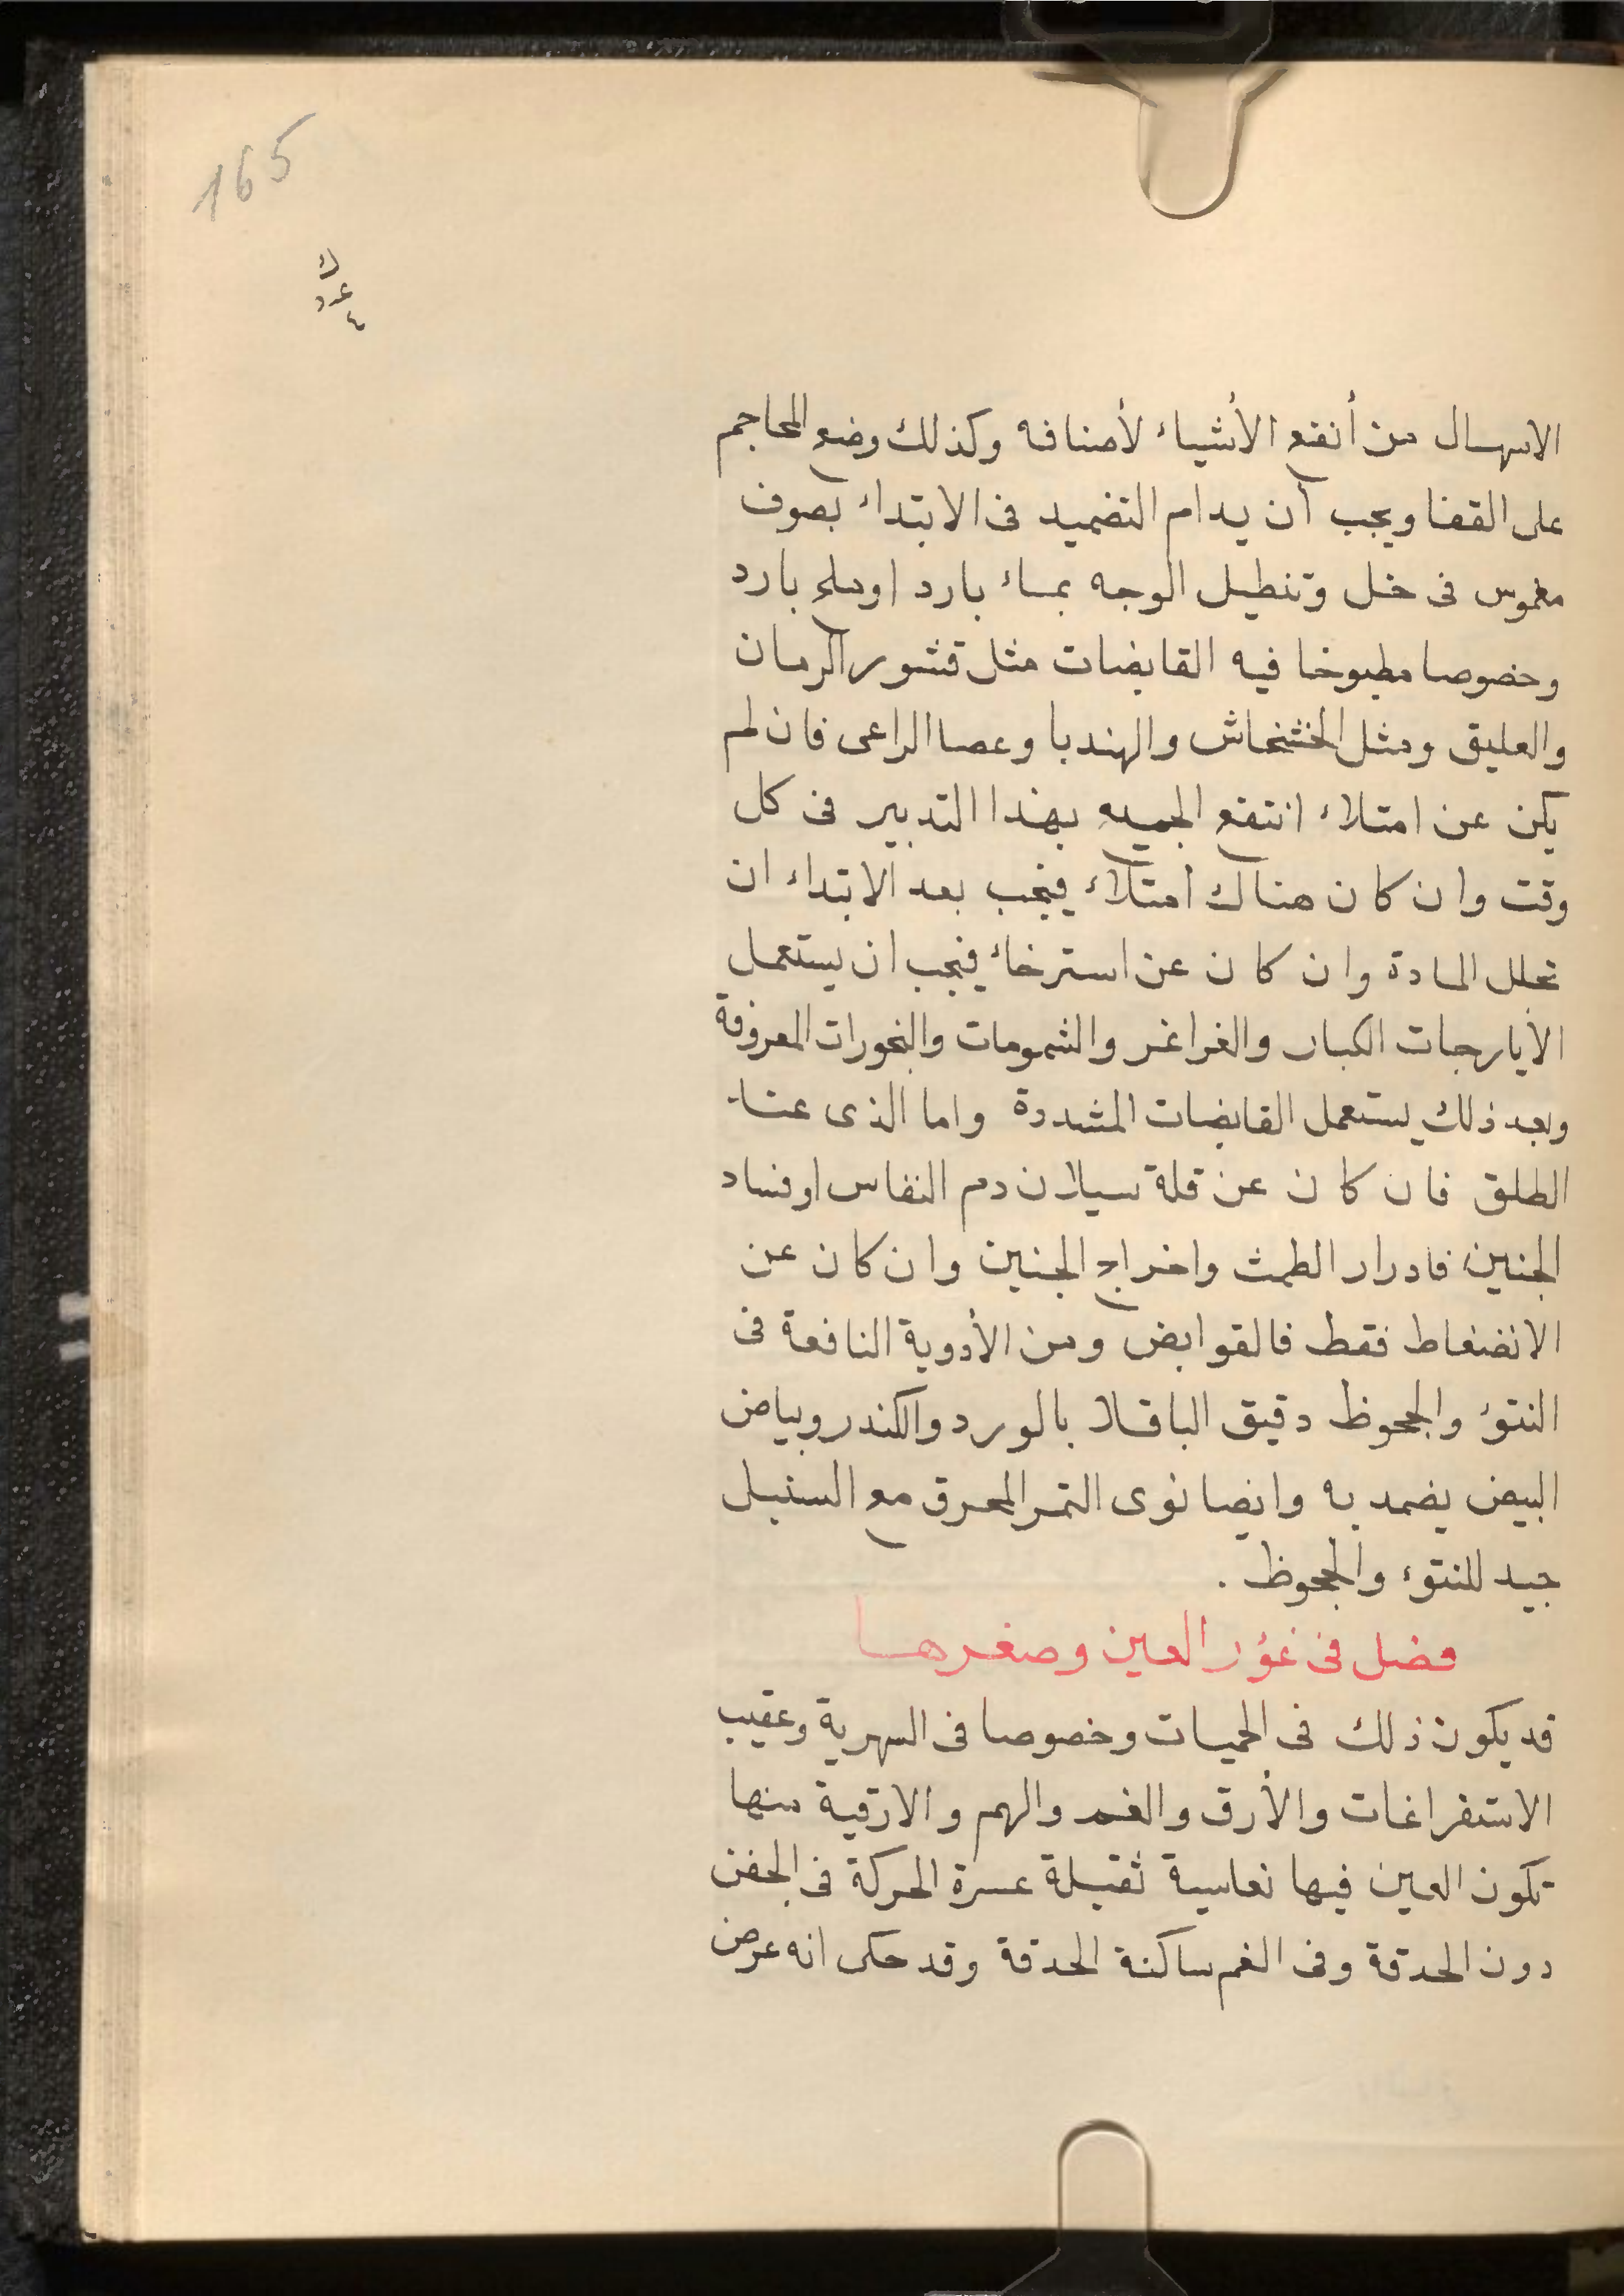 165
ك
عدد
٤
الاسهال من أنفع الأشياء لأصنافه وكذلك وضع المحاجم
على القفا ويجب أن يدام التضميد فى الابتداء بصوف
مغموس فى خل وتنطيل الوجه بماء بارد اوملح بارد
وخصوصا مطبوخا فيه القابضات مثل قشور الرمان
والعليق ومثل الخشخاش والهندبا وعصا الراعى فان لم
يكن عن امتلاء انتفع الجميع بهذا التدبير فى كل
وقت وان كان هناك امتلاء فيجب بعد الابتداء ان
تحلل المادة وان كان عن استرخاء فيجب ان يستعمل
الايارجات الكبار والغراغر والشمومات والبخورات المعروفة
وبعد ذلك يستعمل القابضات المشددة واما الذى عند
الطلق فان كان عن قلة سيلان دم النفاس او فساد
الجنين فادرار الطمث واخراج الجنين وان كان عن
الانضغاط فقط فالقوابض ومن الأدوية النافعة فى
النتوء والجحوظ دقيق الباقلا بالورد والكندر وبياض
البيض يضمد به وايضا نوى التمر المحرق مع السنبل
جيد للنتوء والجحوظ .
فصل فى غؤر العين وصغرها
قد يكون ذلك فى الحميات وخصوصا فى السهرية وعقيب
الاستفراغات والأرق والغم والهم والارقية منها
تكون العين فيها نعاسية ثقيلة عسرة الحركة فى الجفن
دون الحدقة وفى الغم ساكنة الحدقة وقد حكى انه عرض